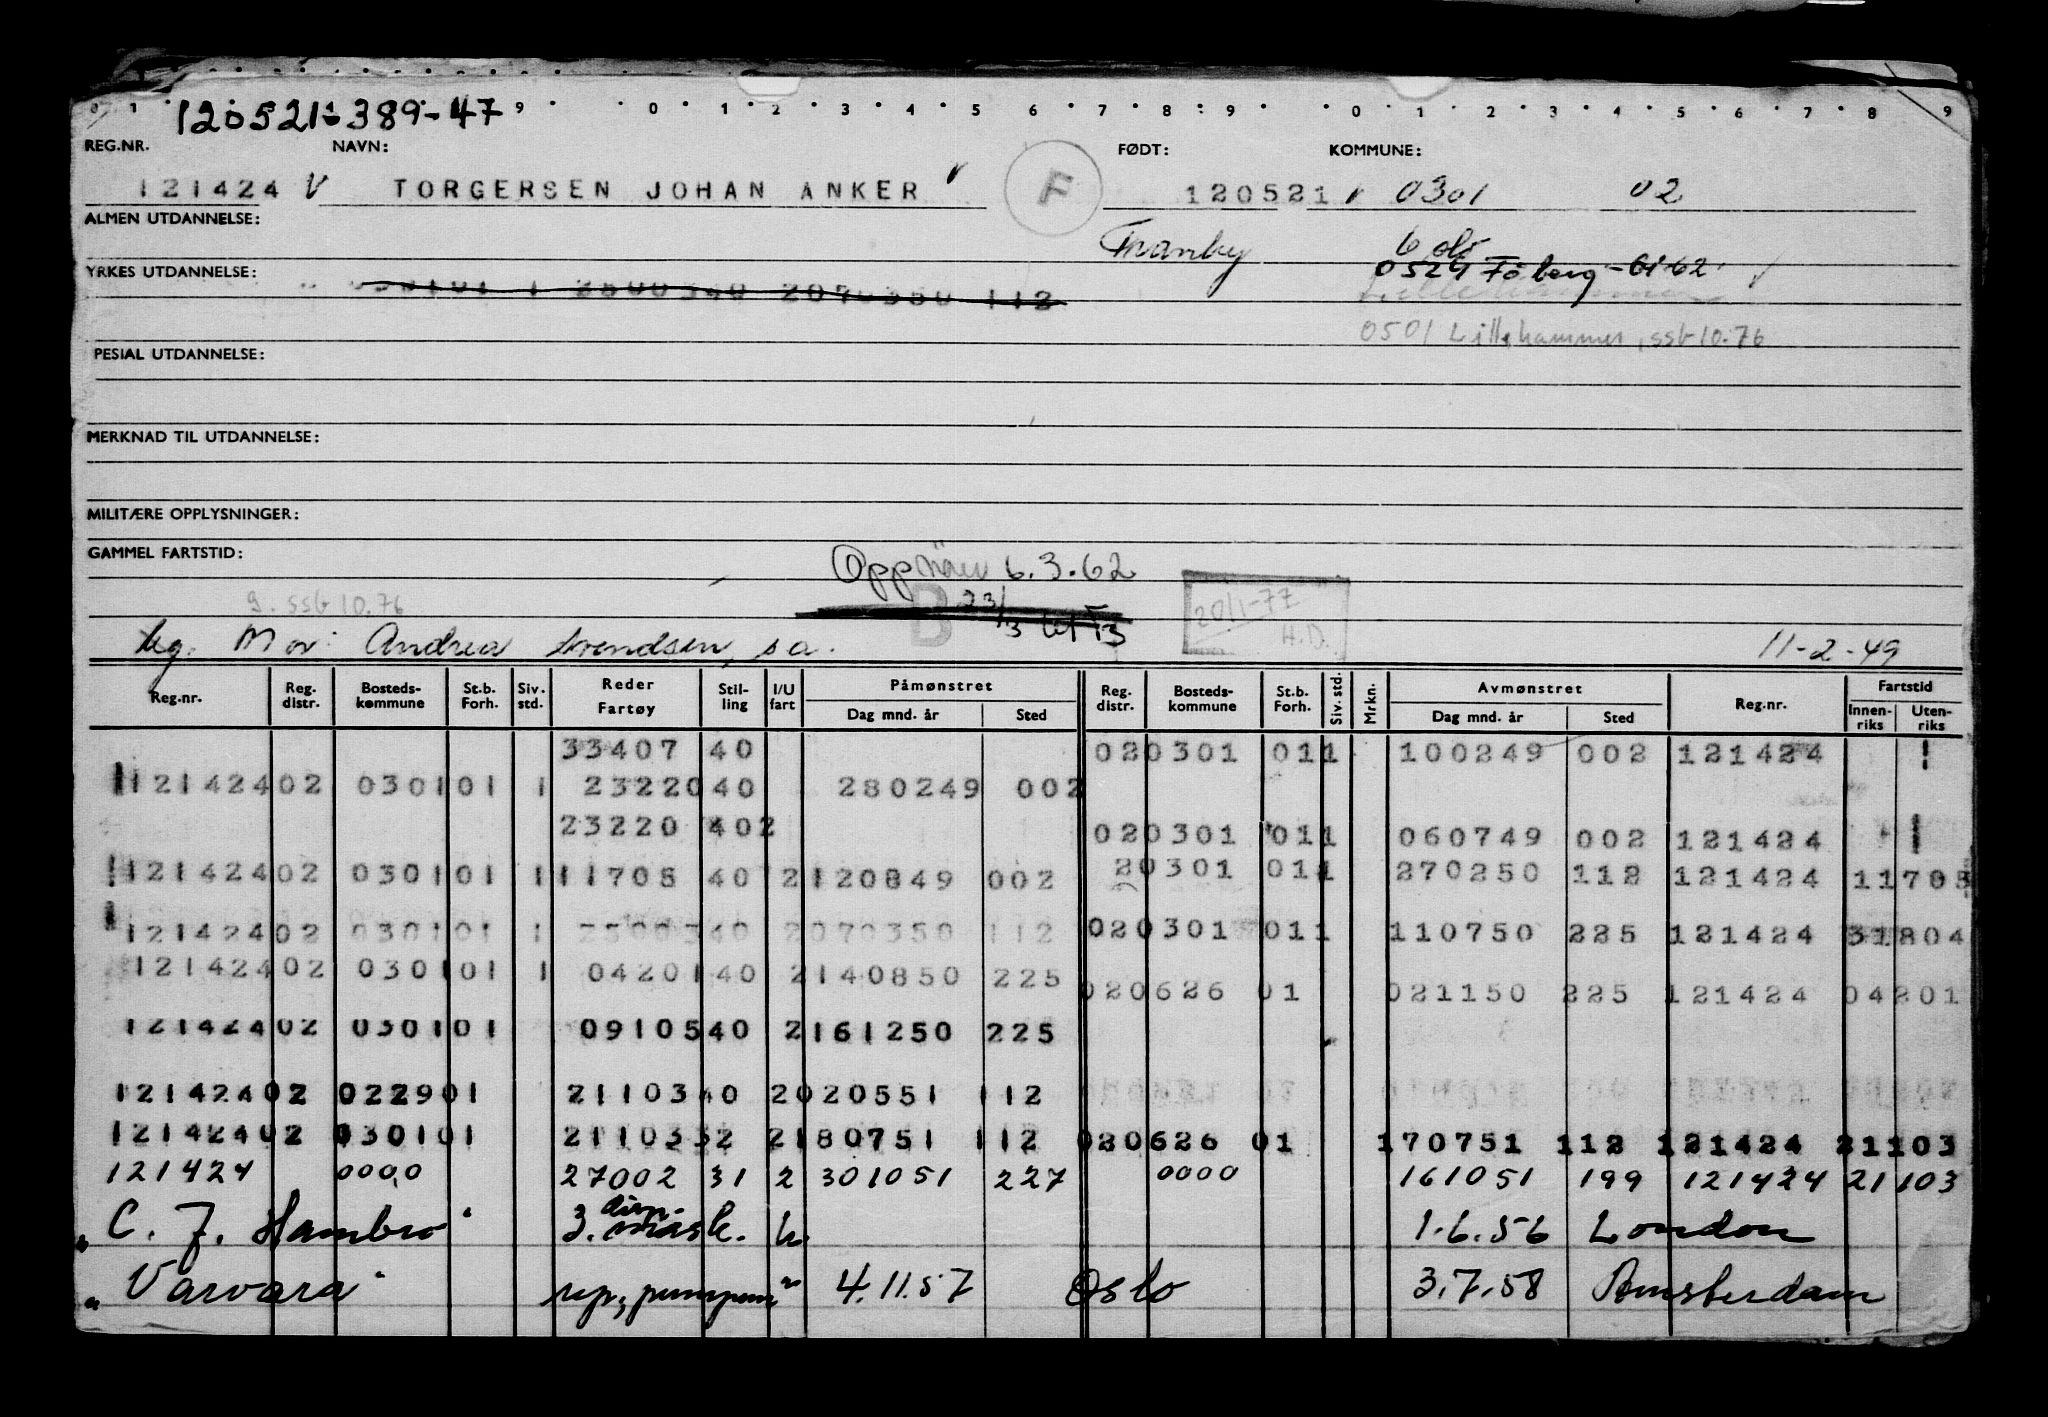 120521 389-47
0 1 9 0 1 2 3 4 5 6 7 8 9 0 1 2 3 4 5 6 7 8 9
REG.NR. NAVN: FØDT: KOMMUNE:
121424 V TORGERSEN JOHAN ANKER F 120521 0301 02
ALMEN UTDANNELSE:
Tranby
YRKES UTDANNELSE: 0524 Fåberg - 6/62
030101 1 2500340 2070350 112
0501 Lillehammer, ssb 10.76
PESIAL UTDANNELSE:
MERKNAD TIL UTDANNELSE:
MILITÆRE OPPLYSNINGER:
GAMMEL FARTSTID:
6.3.62
B 23/3
20/1-77
H.D.
9. ssb 10.76
Mor: Andrea Svendsen, s.a. 11-2-49
Reg.nr. Reg. distr. Bosteds- kommune St.b. Forh. Siv. std. Reder Fartøy Stil- ling I/U fart Påmønstret Dag mnd. år Sted Reg. distr. Bosteds- kommune St.b. Forh. Siv. std. Mrkn. Avmønstret Dag mnd. år Sted Reg.nr. Fartstid Innen- riks Uten- riks
33407 40 020301 011 100249 002 121424
12142402 030101 1 2322040 280249 002
23220 402 020301 011 060749 002 121424
12142402 030101 1 11705 40 2120849 002 20301 011 270250 112 121424 11705
12142402 030101 1 2500340 2070350 112 020301 011 110750 225 121424 31804
12142402 030101 1 0420140 2140850 225 020626 01 021150 225 121424 04201
12142402 030101 0910540 2161250 225
12142402 022901 2110340 2020551 112
12142402 030101 2110332 2180751 112 020626 01 170751 112 121424 21103
121424 0000 27002 31 2 301051 227 0000 161051 199 121424 21103
"C. J. Hambro" 3. mask. u. 1.6.56 London
"Varvara" rep., pumpem" 4.11.57 Oslo 3.7.58 Amsterdam